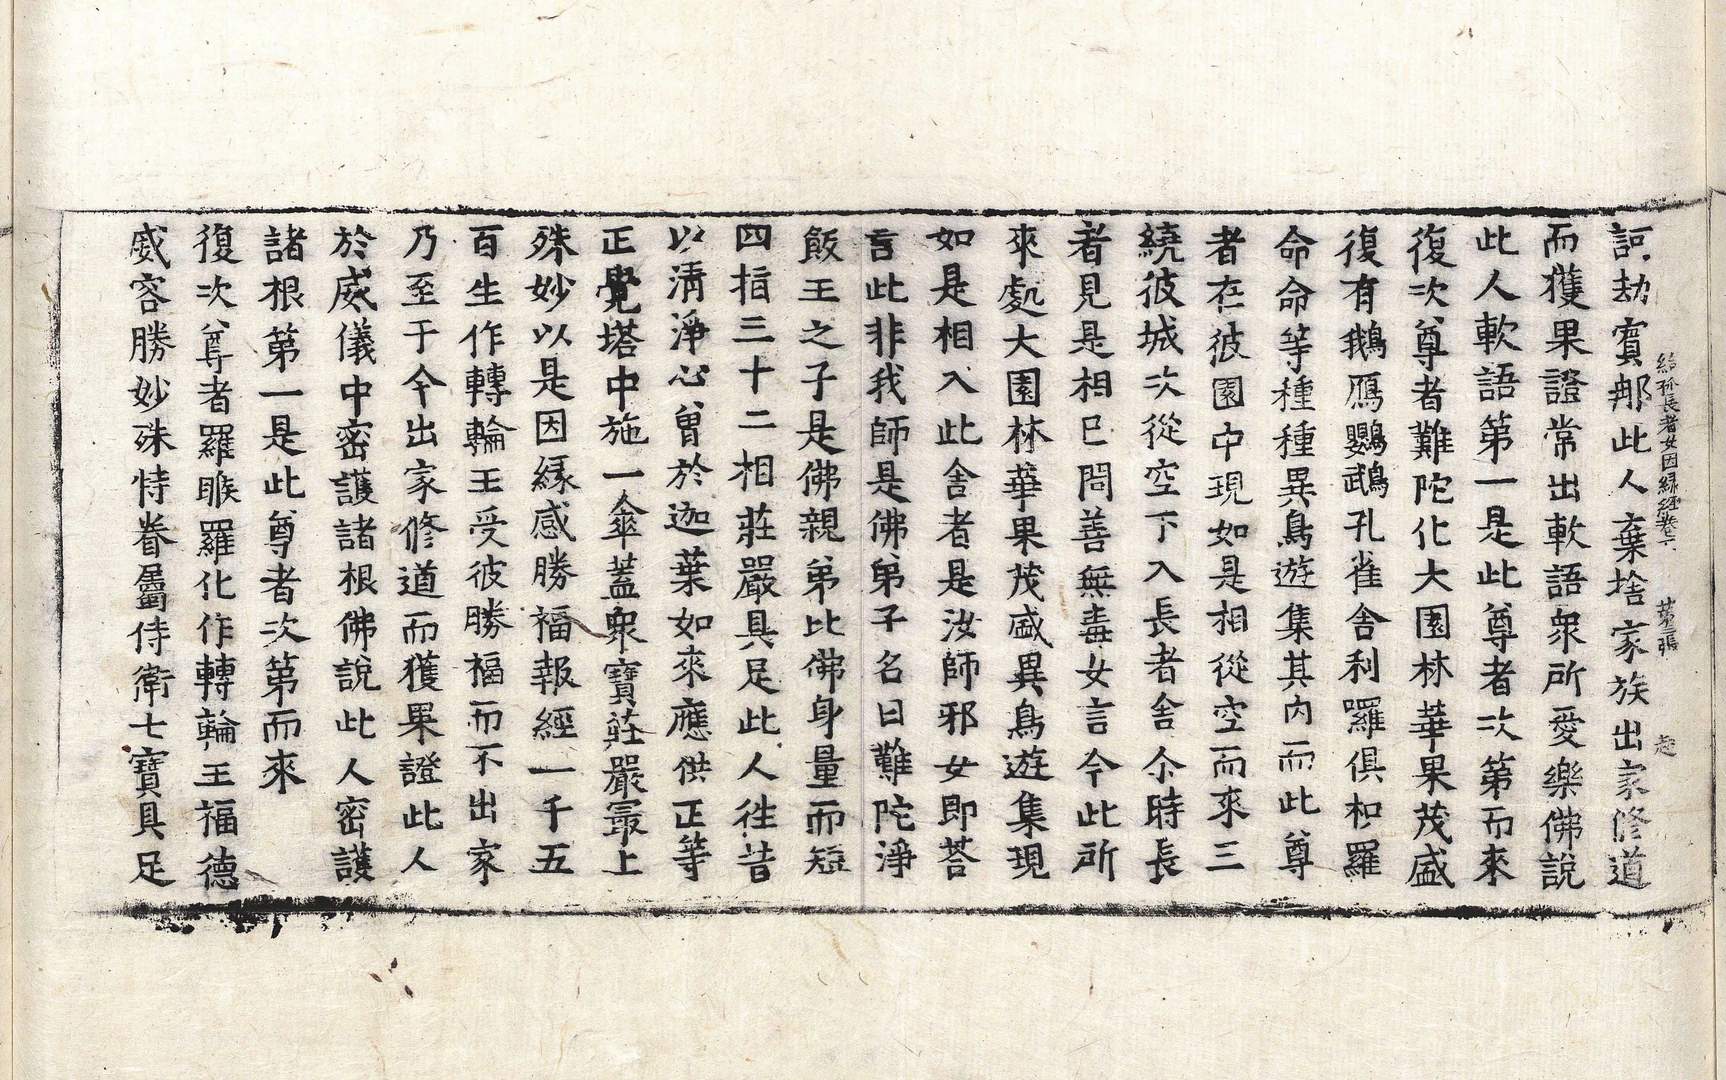 給孤長者女因緣經卷下 第二張 赴
訶劫賓那此人棄捨家族出家修道
而獲果證常出軟語衆所愛樂佛說
此人軟語第一是此尊者次第而來
復次尊者難陀化大園林華果茂盛
復有鵝鴈鸚鵡孔雀舍利囉俱枳羅
命命等種種異鳥遊集其內而此尊
者在彼園中現如是相從空而來三
繞彼城次從空下入長者舍尒時長
者見是相已問善無毒女言今此所
來處大園林華果茂盛異鳥遊集現
如是相入此舍者是汝師邪女即荅
言此非我師是佛弟子名曰難陀淨
飯王之子是佛親弟比佛身量而短
四指三十二相莊嚴具足此人徃昔
以清淨心曾於迦葉如來應供正等
正覺塔中施一傘蓋衆寶莊嚴冣上
殊妙以是因緣感勝福報經一千五
百生作轉輪王受彼勝福而不出家
乃至于今出家修道而獲果證此人
於威儀中密護諸根佛說此人密護
諸根第一是此尊者次第而來
復次尊者羅睺羅化作轉輪王福德
威容勝妙殊特眷屬侍衛七寶具足